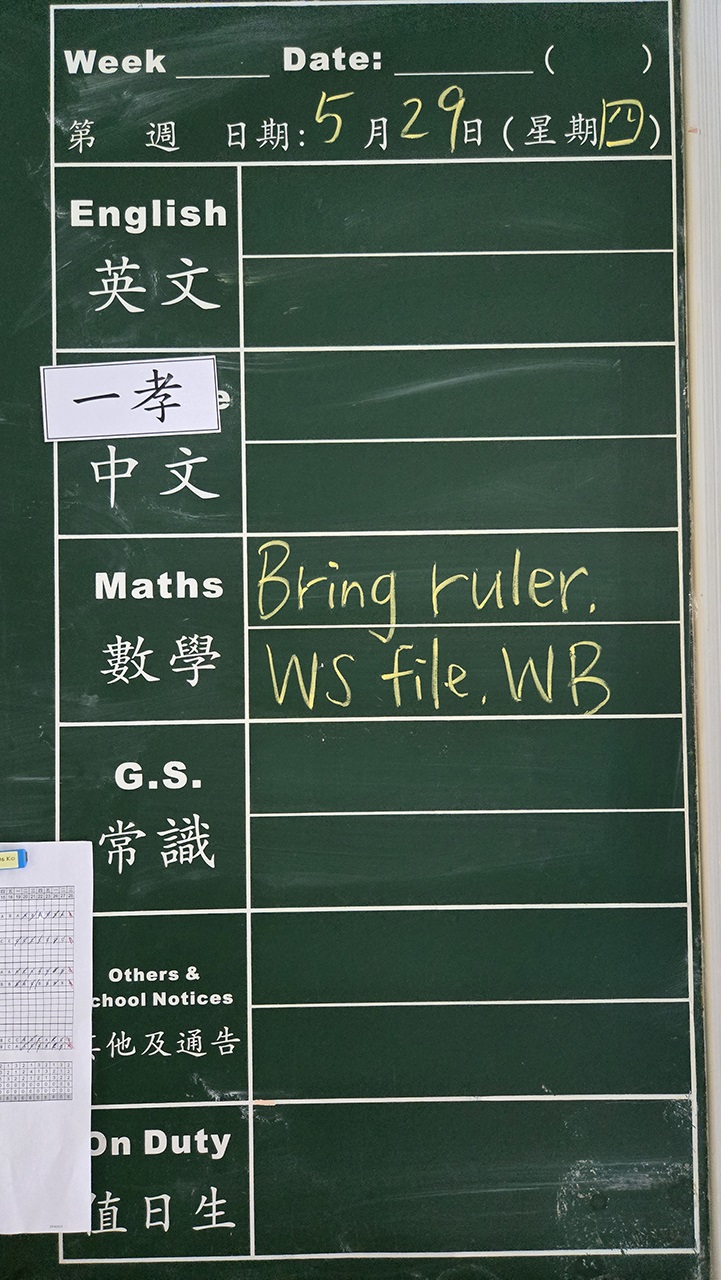 Week ____ Date: ______ ( )
第 週 日期: 5 月 29 日 (星期四)
English
英文
一孝
中文
Maths
數學
Bring ruler.
WS file. WB
G.S.
常識
Others &
chool Notices
他及通告
On Duty
值日生